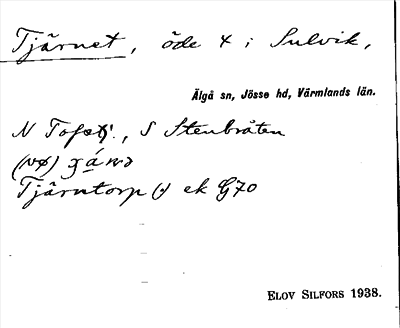 Tjärnet, öde 4 i Sulvik,
Älgå sn, Jösse hd, Värmlands län.
N , S Stenbråten
Tjärntorp (-) ek G70
ELOV SILFORS 1938.